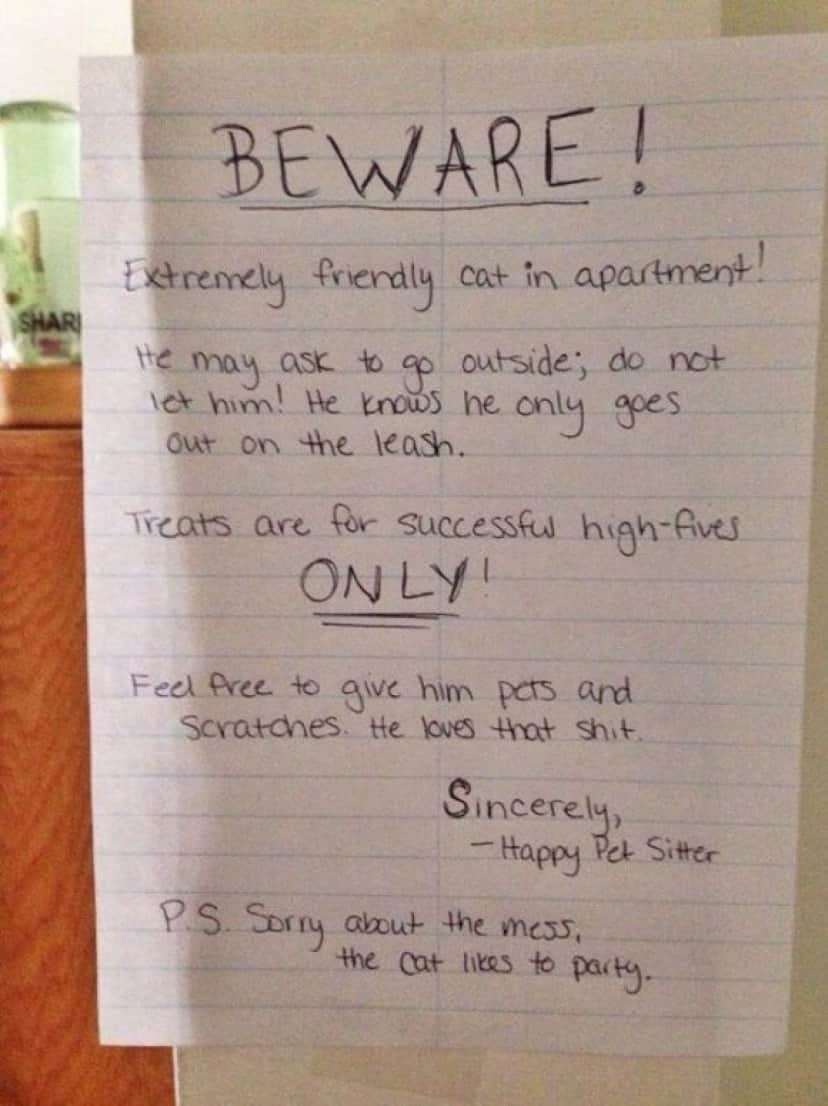 BEWARE!
Extremely friendly cat in apartment!
He may ask to go outside; do not
let him! He knows he only goes
out on the leash.
Treats are for successful high-fives
ONLY!
Feel free to give him pets and
scratches. He loves that shit.
Sincerely,
-Happy Pet Sitter
P.S. Sorry about the mess,
the cat likes to party.
SHAR